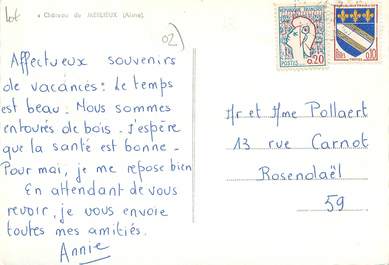 Lot
« Château de MESLIEUX (Aisne).
02)
Affectueux souvenirs
de vacances : Le temps
est beau. Nous sommes
entourés de bois. J'espère
que la santé est bonne.
Pour mai, je me repose bien
En attendant de vous
revoir, je vous envoie
toutes mes amitiés.
Annie
REPUBLIQUE FRANÇAISE
POSTES 0,20
0,10
Mr et Mme Pollaert
13 rue Carnot
Rosendaël
59